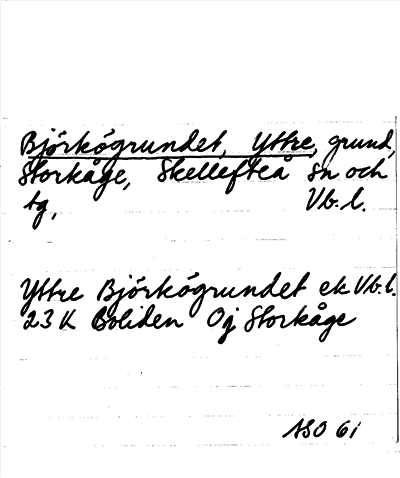 Björkögrundet, Yttre, grund,
Storkåge, Skellefteå sn och
tg, Vb. l.
Yttre Björkögrundet ek Vb. l.
23 K Boliden Oj Storkåge
ASO 61